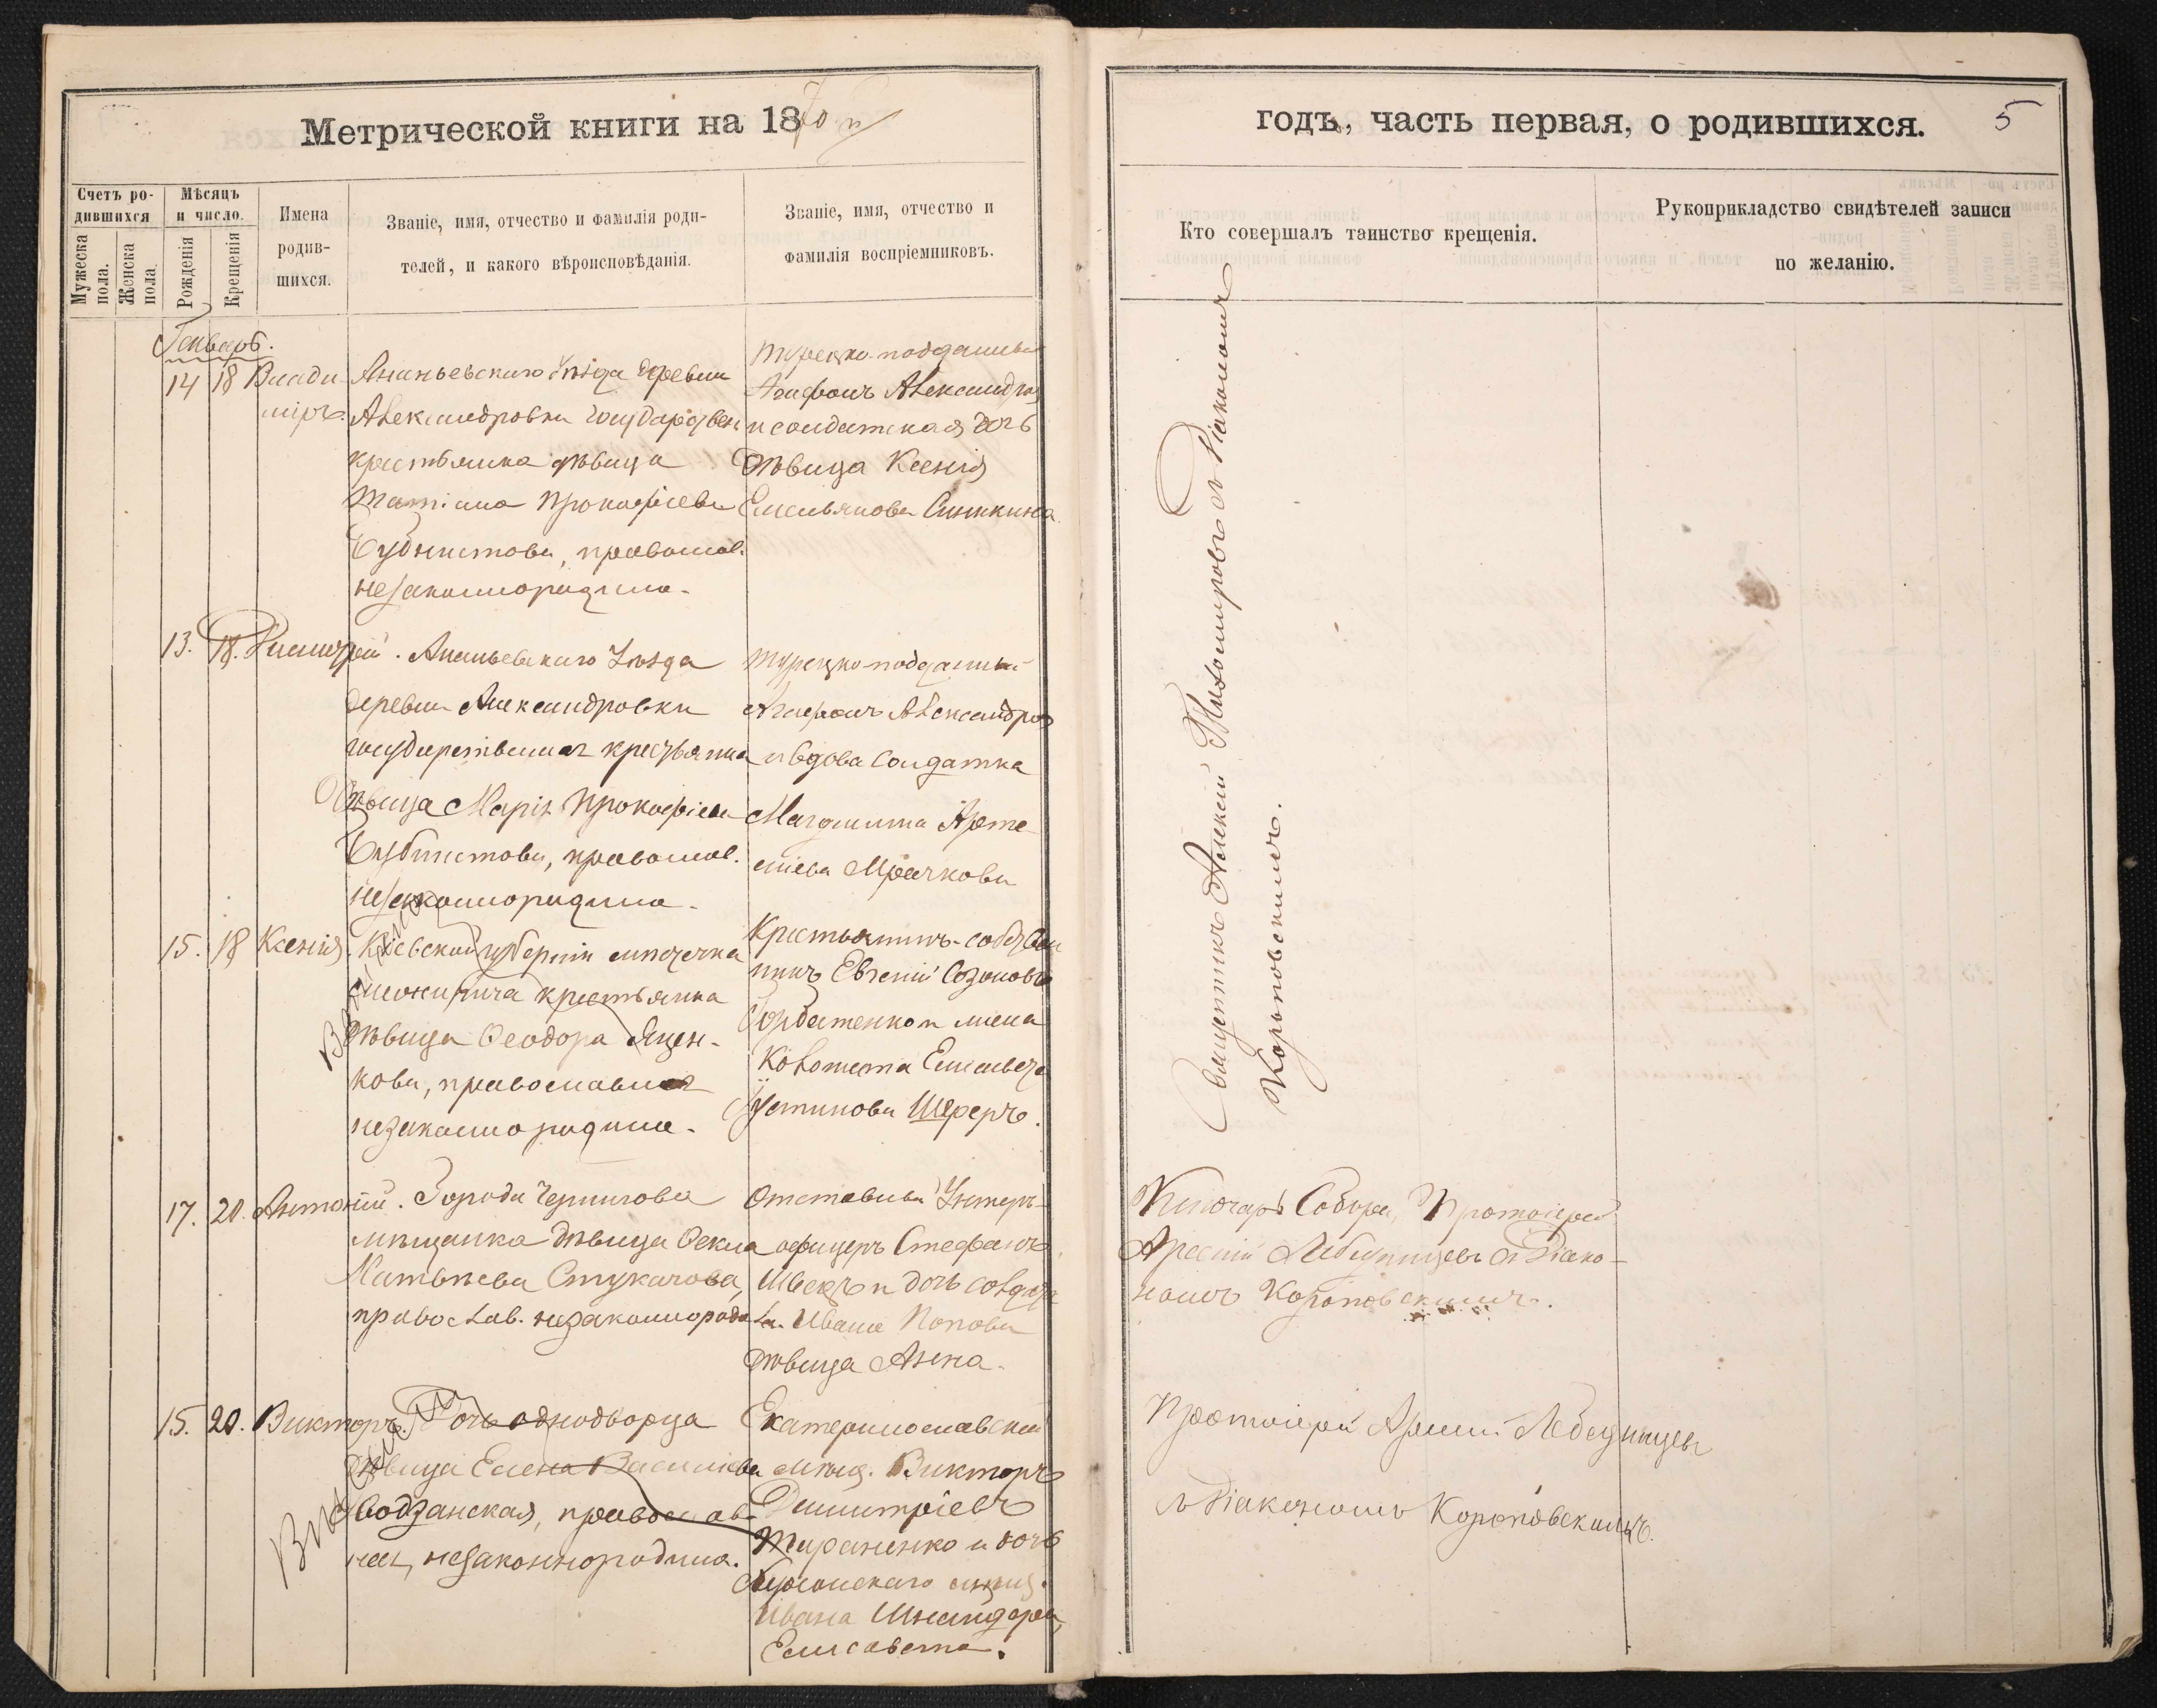 Метрической книги на 1870 й
Счетъ родившихся
Мужеска пола.
Женска пола.
Мѣсяцъ и число.
Рожденія
Крещенія
Имена родившихся.
Званіе, имя, отчество и фамилія родителей, и какого вѣроисповѣданія.
Званіе, имя, отчество и фамилія воспріемниковъ.
Генварь.
14 18 Влади
міръ.
Ананьевскаго Уѣзда деревни
Александровки государствен
крестьянка дѣвица
Татіана Прокофіева
православ.
незаконнорождено.
Турецко-подданный
Агафонъ Александровъ
и солдатская дочь
дѣвица Ксенія
Емельянова Синкина
13. 18.
Ананьевскаго Уѣзда
деревни Александровки
государственная крестьянка
дѣвица Марія Прокофіева
православ.
незаконнорождено.
Турецко-подданный
Агафонъ Александровъ
и вдова солдатка
Арте-
міева Мрачкова
15. 18 Ксенія.
Кіевской губерніи мѣстечка
крестьянка
дѣвица Феодора Яцен-
кова, православная
незаконнорождена.
Крестьянинъ-собствен
никъ Евгеній Созоновъ
Горбатенко и жена
колониста Елисавета
Устинова Шеферъ.
17. 20. Антоній.
Города Чернигова
мѣщанка дѣвица Фекла
Матвѣева Стукачова,
православ. незаконнорожд.
Отставной Унтеръ-
офицеръ Стефанъ
Швецъ и дочь солдата
Ивана Попова
дѣвица Анна.
15. 20. Викторъ.
Дочь однодворца
дѣвица Елена Василіева
православ-
ная, незаконнорождена.
Екатеринославскій
мѣщ. Викторъ
Димитріевъ
Тараненко и дочь
Херсонскаго мѣщ.
Ивана Шнайдера,
Елисавета.
годъ, часть первая, о родившихся. 5
Кто совершалъ таинство крещенія.
Рукоприкладство свидѣтелей записи по желанію.
Священникъ Алексей Тихомировъ съ Діакономъ
Короповскимъ.
Ключарь Собора, Протоіерей
Арсеній Лебединцевъ съ Діако-
номъ Короповскимъ.
Протоіерей Арсеній Лебединцевъ
съ Діакономъ Короповскимъ.